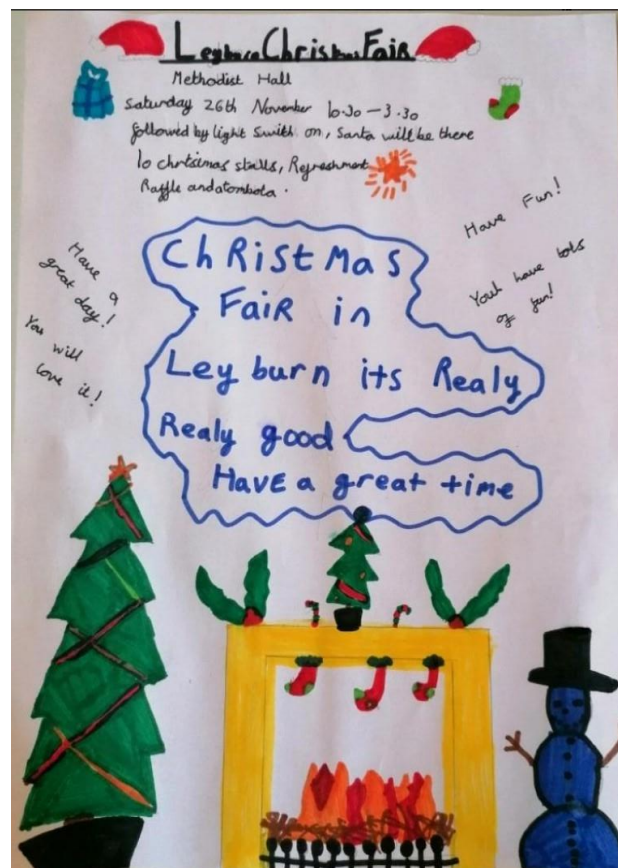 Leyburn Christmas Fair
Methodist Hall
Saturday 26th November 10.30 - 3.30
followed by light Swith on, Santa will be there
10 chrtsimas stalls, Refreshment
Raffle and atombola.
Have Fun!
Youh have lots
of fun!
Have a
great day!
You will
love it!
ChRistMas
FaiR in
Leyburn its Realy
Realy good
HavE a great time